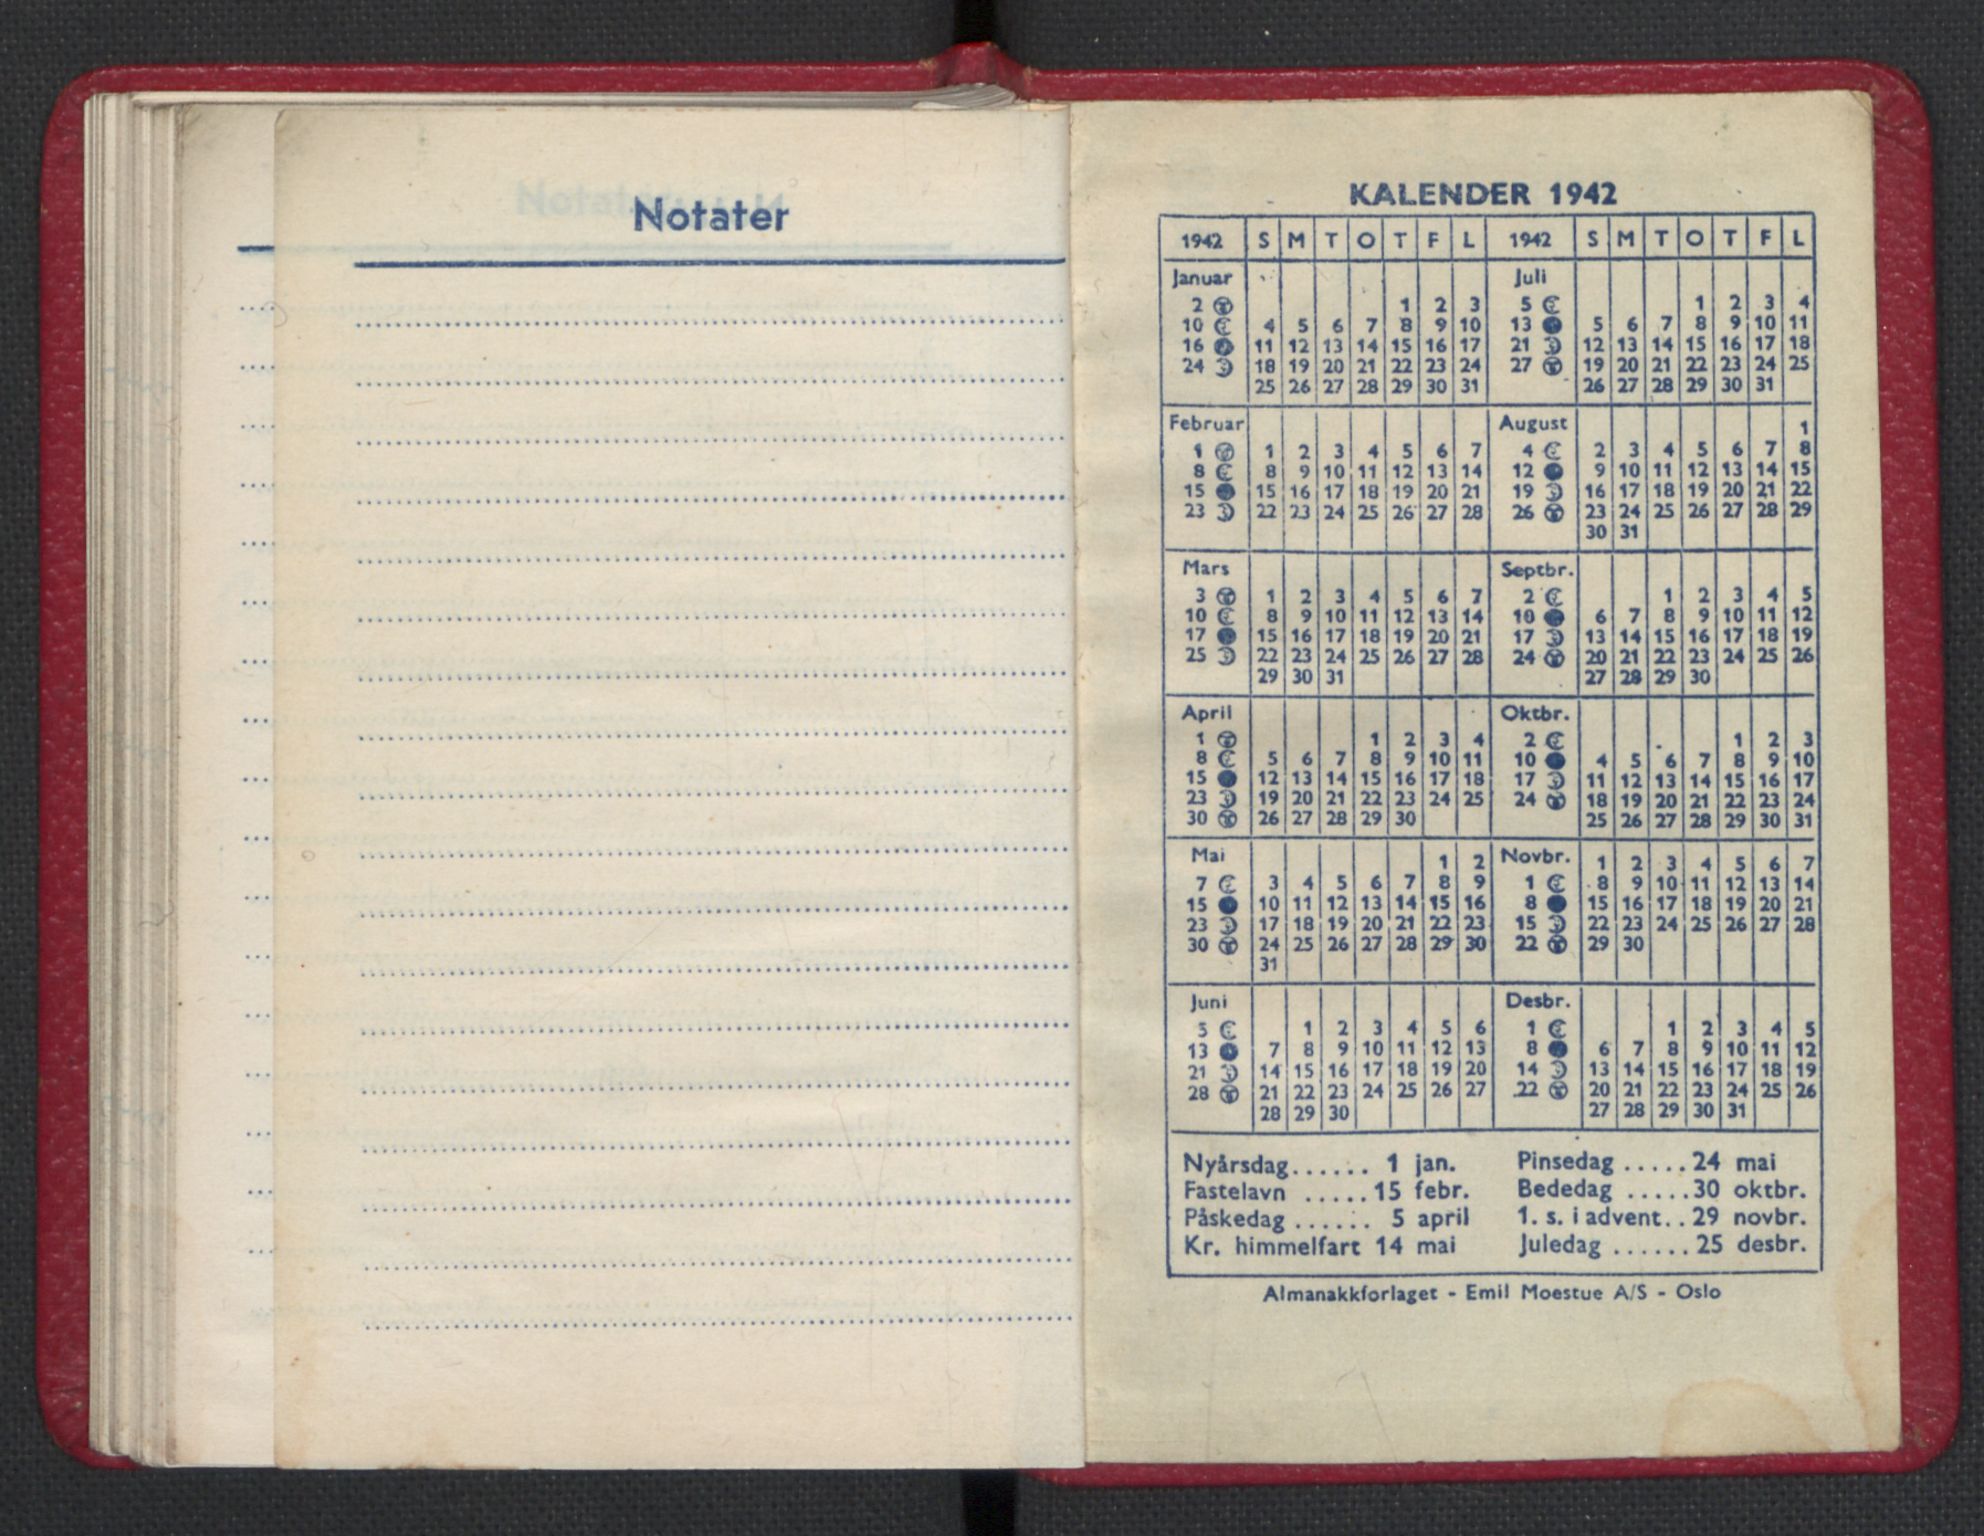 Notater
KALENDER 1942
1942 S M T O T F L 1942 S M T O T F L
Januar Juli
2 1 2 3 5 1 2 3 4
10 4 5 6 7 8 9 10 13 5 6 7 8 9 10 11
16 11 12 13 14 15 16 17 21 12 13 14 15 16 17 18
24 18 19 20 21 22 23 24 27 19 20 21 22 23 24 25
25 26 27 28 29 30 31 26 27 28 29 30 31
Februar August 1
1 1 2 3 4 5 6 7 4 2 3 4 5 6 7 8
8 8 9 10 11 12 13 14 12 9 10 11 12 13 14 15
15 15 16 17 18 19 20 21 19 16 17 18 19 20 21 22
23 22 23 24 25 26 27 28 26 23 24 25 26 27 28 29
30 31
Mars Septbr.
3 1 2 3 4 5 6 7 2 1 2 3 4 5
10 8 9 10 11 12 13 14 10 6 7 8 9 10 11 12
17 15 16 17 18 19 20 21 17 13 14 15 16 17 18 19
25 22 23 24 25 26 27 28 24 20 21 22 23 24 25 26
29 30 31 27 28 29 30
April Oktbr.
1 1 2 3 4 2 1 2 3
8 5 6 7 8 9 10 11 10 4 5 6 7 8 9 10
15 12 13 14 15 16 17 18 17 11 12 13 14 15 16 17
23 19 20 21 22 23 24 25 24 18 19 20 21 22 23 24
30 26 27 28 29 30 25 26 27 28 29 30 31
Mai 1 2 Novbr. 1 2 3 4 5 6 7
7 3 4 5 6 7 8 9 1 8 9 10 11 12 13 14
15 10 11 12 13 14 15 16 8 15 16 17 18 19 20 21
23 17 18 19 20 21 22 23 15 22 23 24 25 26 27 28
30 24 25 26 27 28 29 30 22 29 30
31
Juni Desbr.
5 1 2 3 4 5 6 1 1 2 3 4 5
13 7 8 9 10 11 12 13 8 6 7 8 9 10 11 12
21 14 15 16 17 18 19 20 14 13 14 15 16 17 18 19
28 21 22 23 24 25 26 27 22 20 21 22 23 24 25 26
28 29 30 27 28 29 30 31
Nyårsdag...... 1 jan. Pinsedag .....24 mai
Fastelavn .....15 febr. Bededag .....30 oktbr.
Påskedag ...... 5 april 1. s. i advent.. 29 novbr.
Kr. himmelfart 14 mai Juledag ......25 desbr.
Almanakkforlaget - Emil Moestue A/S - Oslo